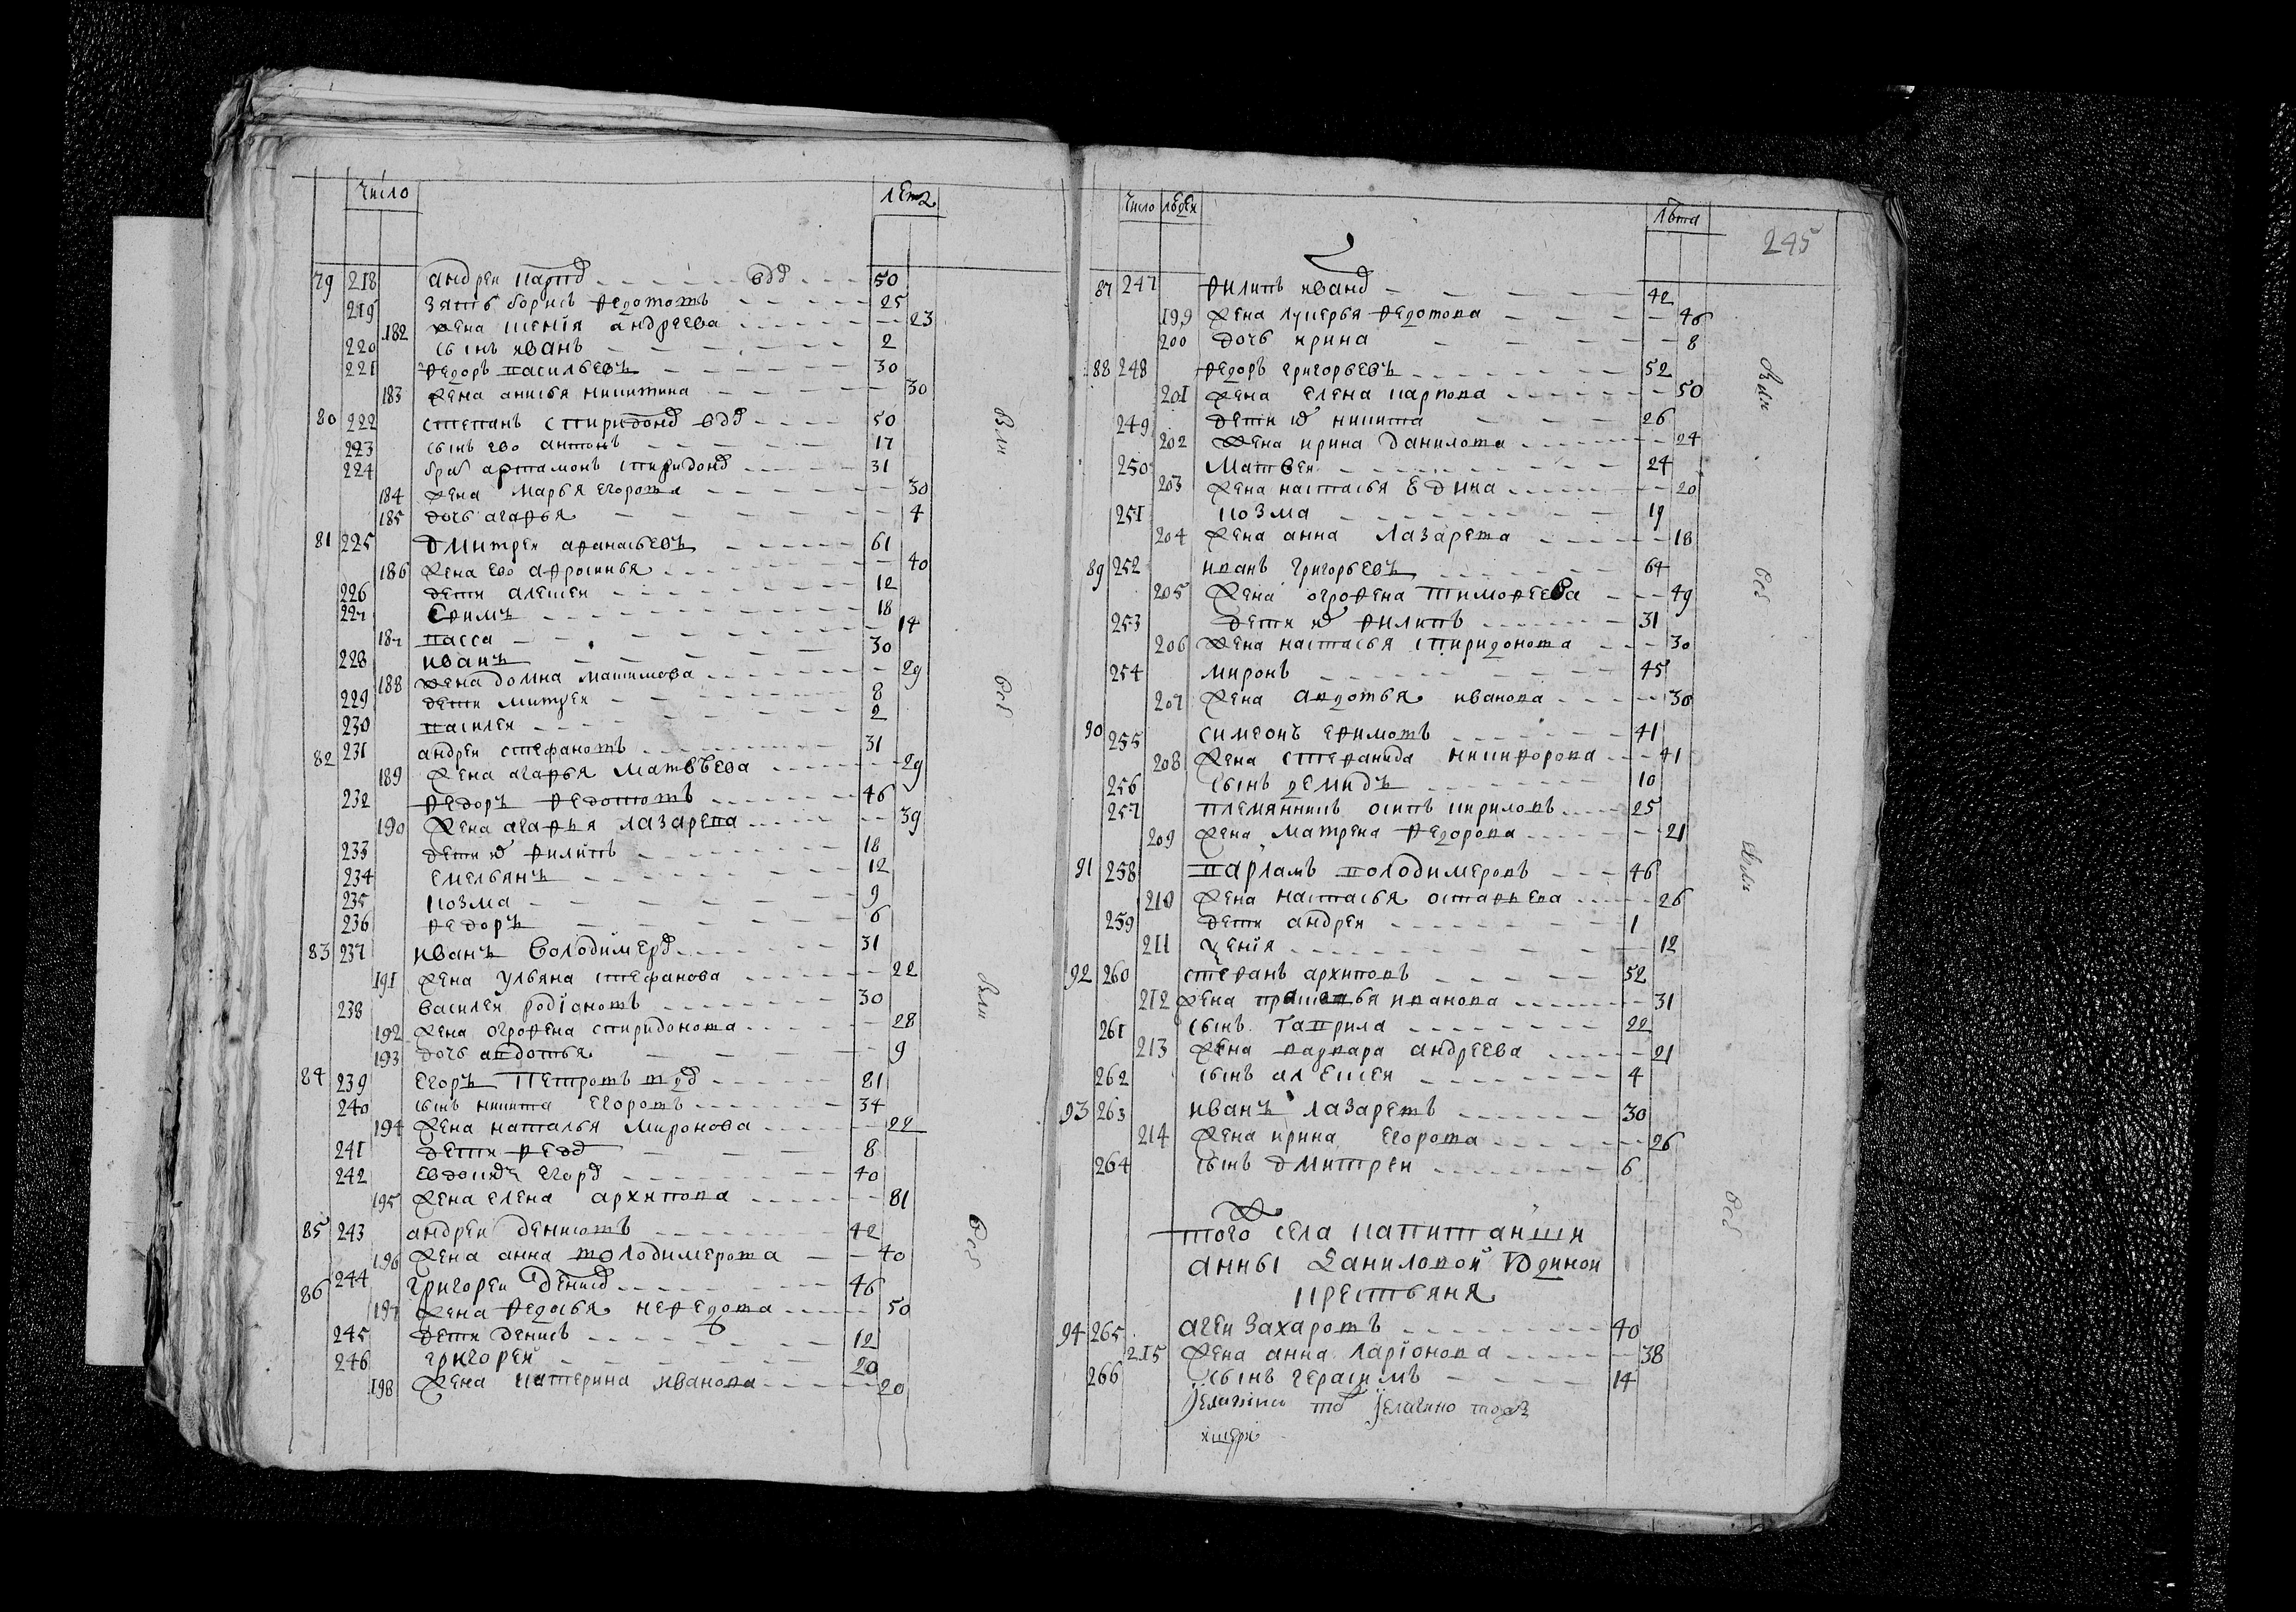 число лета
79 218 андреи карпо вдо 50
219 зять борисъ федотовъ 25
182 жена ксенiя андреева 23
220 сынъ иванъ 2
221 федоръ васильевъ 30
183 жена анисья никитина 30
80 222 степанъ спиридоно вдо 50
223 сынъ ево антонъ 17
224 бра артамонъ спиридоно 31
184 жена марья егорова 30
185 дочь агафья 4
81 225 дмитреи афанасьевъ 61
186 жена ево афросинья 40
226 дети алексеи 12
227 ефимъ 18
187 васса 14
228 иванъ 30
188 жена домна максимова 29
229 дети митреи 8
230 василеи 2
82 231 андреи стефановъ 31
189 жена агафья матвѣева 29
232 федоръ федотовъ 46
190 жена агафья лазарева 39
233 дети и филипъ 18
234 емельянъ 12
235 козма 9
236 федоръ 6
83 237 иванъ володимеро 31
191 жена ульяна стефанова 22
238 василеи родiоновъ 30
192 жена огрофена спиридонова 28
193 дочь авдотья 9
84 239 егоръ петровъ 81
240 сынъ никита егоровъ 34
194 жена наталья миронова 22
241 дети федо 8
242 евдоки егоро 40
195 жена елена архипова 81
85 243 андреи денисовъ 42
196 жена анна володимерова 40
86 244 григореи денисо 46
197 жена федосья нефедова 50
245 дети денисъ 12
246 григореи 20
198 жена катерина иванова 20
вли
обо
вли
обо
число людеи лѣта
245
87 247 филипъ ивано 42
199 жена лукерья федотова 46
200 дочь ирина 8
88 248 федоръ григорьевъ 52
201 жена елена карпова 50
249 дети и никита 26
202 жена ирина данилова 24
250 матвеи 24
203 жена настасья 20
251 козма 19
204 жена анна лазарева 18
89 252 иванъ григорьевъ 64
205 жена огрофена тимофеева 49
253 дети и филипъ 31
206 жена настасья спиридонова 30
254 миронъ 45
207 жена авдотья иванова 30
90 255 симеонъ ефимовъ 41
208 жена стефанида никифорова 41
256 сынъ демидъ 10
257 племянникъ осипъ кириловъ 25
209 жена матрена федорова 21
91 258 варламъ володимеровъ 46
210 жена настасья остафьева 26
259 дети андреи 1
211 ксенiя 12
92 260 стефанъ архиповъ 52
212 жена прасковья иванова 31
261 сынъ гаврила 22
213 жена варвара андреева 21
262 сынъ алексеи 4
93 263 иванъ лазаревъ 30
214 жена ирина егорова 26
264 сынъ дмитреи 6
того села капитанши
анны даниловой юдиной
крестьяня
94 265 агеи захаровъ 40
215 жена анна ларiонова 38
266 сынъ герасимъ 14
обо
обо